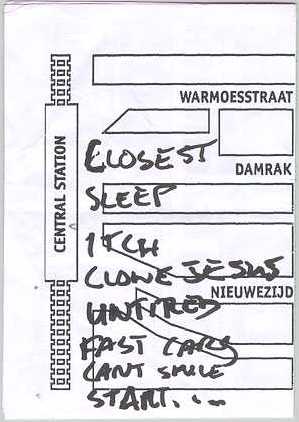 WARMOESSTRAAT
CENTRAL STATION
CLOSEST
DAMRAK
SLEEP
ITCH
CLONE JESUS
NIEUWEZIJD
UNTIRED
FAST CARS
CANT SMILE
START....